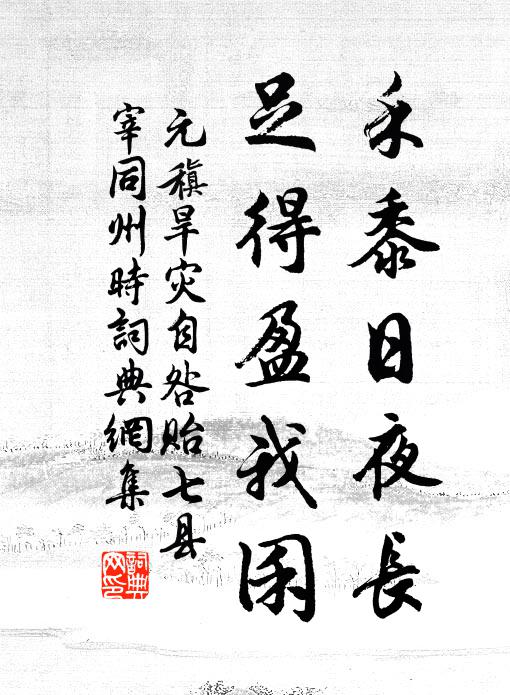 禾黍日夜長
足得盈我囷
元稹旱灾自咎貽七县
宰同州時詞典網集
詞典
网印